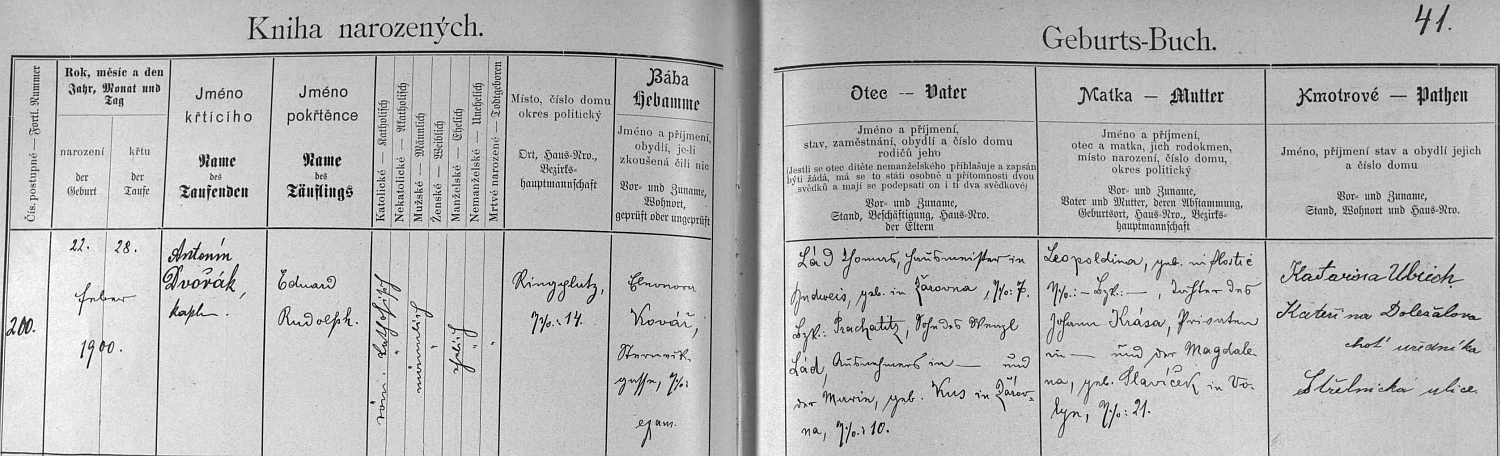 41.
Kniha narozených.
Geburts-Buch.
Čís. postupné — Fortl. Nummer
Rok, měsíc a den
Jahr, Monat und
Tag
narození
der
Geburt
křtu
der
Taufe
Jméno
křtícího
Name
des
Taufenden
Jméno
pokřtěnce
Name
des
Täuflings
Katolické — Katholisch
Nekatolické — Akatholisch
Mužské — Männlich
Ženské — Weiblich
Manželské — Ehelich
Nemanželské — Unehelich
Mrtvé narozené — Todtgeboren
Místo, číslo domu
okres politický
Ort, Haus-Nro.,
Bezirks-
hauptmannschaft
Bába
Hebamme
Jméno a příjmení,
obydlí, je-li
zkoušená čili nic
Vor- und Zuname,
Wohnort,
geprüft oder ungeprüft
Otec — Vater
Jméno a příjmení,
stav, zaměstnání, obydlí a číslo domu
rodičů jeho
(Jestli se otec dítěte nemanželského přihlašuje a zapsán
býti žádá, má se to státi osobně u přítomnosti dvou
svědků a mají se podepsati on i ti dva svědkové)
Vor- und Zuname,
Stand, Beschäftigung, Haus-Nro.
der Eltern
Matka — Mutter
Jméno a příjmení,
otec a matka, jich rodokmen,
místo narození, číslo domu,
okres politický
Vor- und Zuname,
Vater und Mutter, deren Abstammung,
Geburtsort, Haus-Nro., Bezirks-
hauptmannschaft
Kmotrové — Pathen
Jméno, příjmení stav a obydlí jejich
a číslo domu
Vor- und Zuname,
Stand, Wohnort und Haus-Nro.
200.
22. 28.
feber
1900.
Antonín
Dvořák,
kapl.
Eduard
Rudolph.
röm. katholisch
"
männlich
"
ehelich
"
"
Ringplatz,
No: 14.
Eleonora
Kovář,
gasse, No:
exam.
Lád Thomas, Hausmeister in
Budweis, geb. in Žárovna, No: 7.
Bzk: Prachatitz, Sohn des Wenzl
Lád, Ausnehmers in — und
der Marie, geb. Kus in Žárov-
na, No: 10.
Leopoldina, geb. in
No: — Bzk: —, Tochter des
Johann Krása, Privaten
in — und der Magdale-
na, geb. Slavíček in Vo-
lyn, No: 21.
Katarina Ulrich
Kateřina Doležalova
choť uředníka
Střelnická ulice